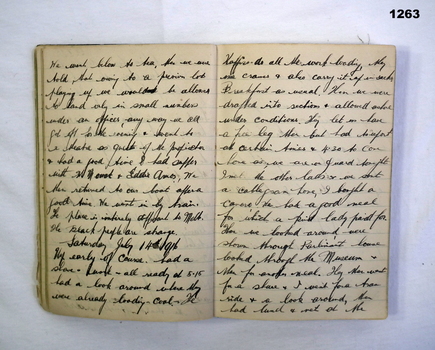 1263
We went below to tea, then we were
told, that owing to a previous lot
playing up we wouldn't be allowed
to land only in small numbers
under an officer any way we all
got off in the evening & went to
a theatre as guests of the
& had a good time. I had supper
with & Eddie Amos, We
then returned to our boat after a
good time. We went in by train.
The place is entirely different to Melb.
The black people are strange.
Saturday July 14th 1916
Up early of course. had a
shave & wash - all ready at 5-15
had a look around where they
were already loading coal. The
Kaffirs do all the work loading, they
use cranes & also carry it up in sacks
Breakfast as usual. Then we were
drafted into sections & allowed ashore
under conditions. They let us have
a free leg then but had to report
at certain times & 4-30 to come
home as we are on guard tonight
I met the other lads & we sent
a cablegram home, I bought a
We had a good meal
for which a lady paid for
Then we looked around were
shown through Parliament house
looked through the Museum &
then for another meal. Hy then went
for a shave & I went for a tram
ride & a look around, then
had lunch & met at the